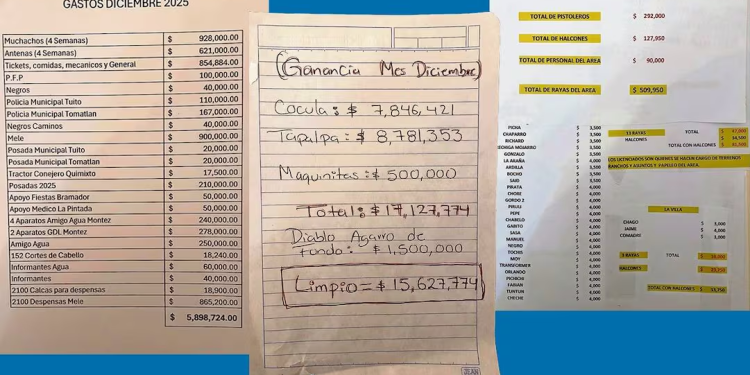 GASTOS DICIEMBRE 2025
Muchachos (4 Semanas) $ 928,000.00
Antenas (4 Semanas) $ 621,000.00
Tickets, comidas, mecanicos y General $ 854,884.00
P.F.P $ 100,000.00
Negros $ 40,000.00
Policia Municipal Tuito $ 110,000.00
Policia Municipal Tomatlan $ 167,000.00
Negros Caminos $ 40,000.00
Mele $ 900,000.00
Posada Municipal Tuito $ 20,000.00
Posada Municipal Tomatlan $ 20,000.00
Tractor Conejero Quimixto $ 17,500.00
Posadas 2025 $ 210,000.00
Apoyo Fiestas Bramador $ 50,000.00
Apoyo Medico La Pintada $ 50,000.00
4 Aparatos Amigo Agua Montez $ 240,000.00
2 Aparatos GDL Montez $ 278,000.00
Amigo Agua $ 250,000.00
152 Cortes de Cabello $ 18,240.00
Informantes Agua $ 60,000.00
Informantes $ 40,000.00
2100 Calcas para despensas $ 18,900.00
2100 Despensas Mele $ 865,200.00
$ 5,898,724.00
(Ganancia Mes Diciembre)
Cocula: $ 7,846,421
Tapalpa: $ 8,781,353
Maquinitas: $ 500,000
Total: $ 17,127,774
Diablo Agarro de
fondo: $ 1,500,000
Limpio = $ 15,627,774
JEAN
TOTAL DE PISTOLEROS $ 292,000
TOTAL DE HALCONES $ 127,950
TOTAL DE PERSONAL DEL AREA $ 90,000
TOTAL DE RAYAS DEL AREA $ 509,950
PICHA $ 3,500
CHAPARRO $ 3,500
RICHARD $ 3,500
$ 3,500
GONZALO $ 3,500
LA ARAÑA $ 4,000
ARDILLA $ 3,500
BOCHO $ 3,500
SAID $ 3,500
PIRATA $ 4,000
CHORE $ 4,000
GORDO 2 $ 4,000
PIRULI $ 4,000
PEPE $ 4,000
CHABELO $ 4,000
GABITO $ 4,000
SASA $ 4,000
MANUEL $ 4,000
NEGRO $ 4,000
TOCHIS $ 4,000
MOY $ 4,000
TRANSFORMER $ 4,000
ORLANDO $ 4,000
PICHICHI $ 4,000
FABIAN $ 4,000
TUNTUN $ 4,000
CHECHE $ 4,000
RAYAS TOTAL
HALCONES
TOTAL CON HALCONES
LOS LICENCIADOS SON QUIENES SE HACEN CARGO DE TERRENOS
RANCHOS Y ASUNTOS Y PAPELEO DEL AREA.
LA VILLA
CHAGO $ 5,000
JAIME $ 4,000
COMADRE $ 3,000
3 RAYAS TOTAL
HALCONES
TOTAL CON HALCONES